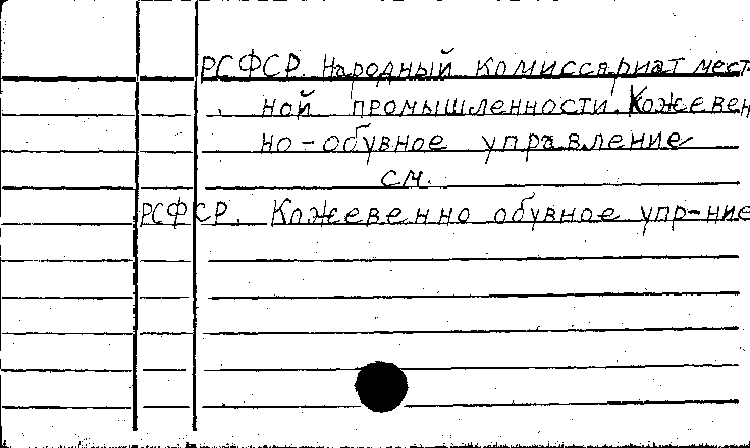 РСФСР. Народный комиссариат мест
ной промышленности. Кожевен
но-обувное управление
см.
РСФСР. Кожевенно обувное упр-ние